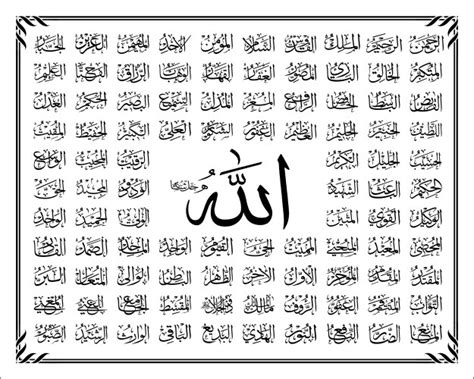 الرحمن الرحيم الملك القدوس السلام المؤمن الاحد المهيمن العزيز الجبار
المتكبر الخالق البارئ المصور الغفار القهار الوهاب الرزاق الفتاح العليم
القابض الباسط الخافض الرافع المعز المذل السميع البصير الحكم العدل
اللطيف الخبير الحليم العظيم الغفور الشكور العلي الكبير الحفيظ المقيت
الحسيب الجليل الكريم الرقيب المجيب الواسع
الحكيم الباعث الشهيد الله جل جلاله الودود المجيد
الوكيل القوي المتين الحميد
المحصي المبدئ المعيد المحيي المميت الحي القيوم الواحد الصمد القادر
المقتدر المقدم المؤخر الاول الاخر الظاهر الباطن الوالي المتعالي البر
التواب المنتقم العفو الرؤوف مالك الملك ذو الجلال والاكرام المقسط الجامع الغني المغني
المانع الضار النافع النور الهادي البديع الباقي الوارث الرشيد الصبور